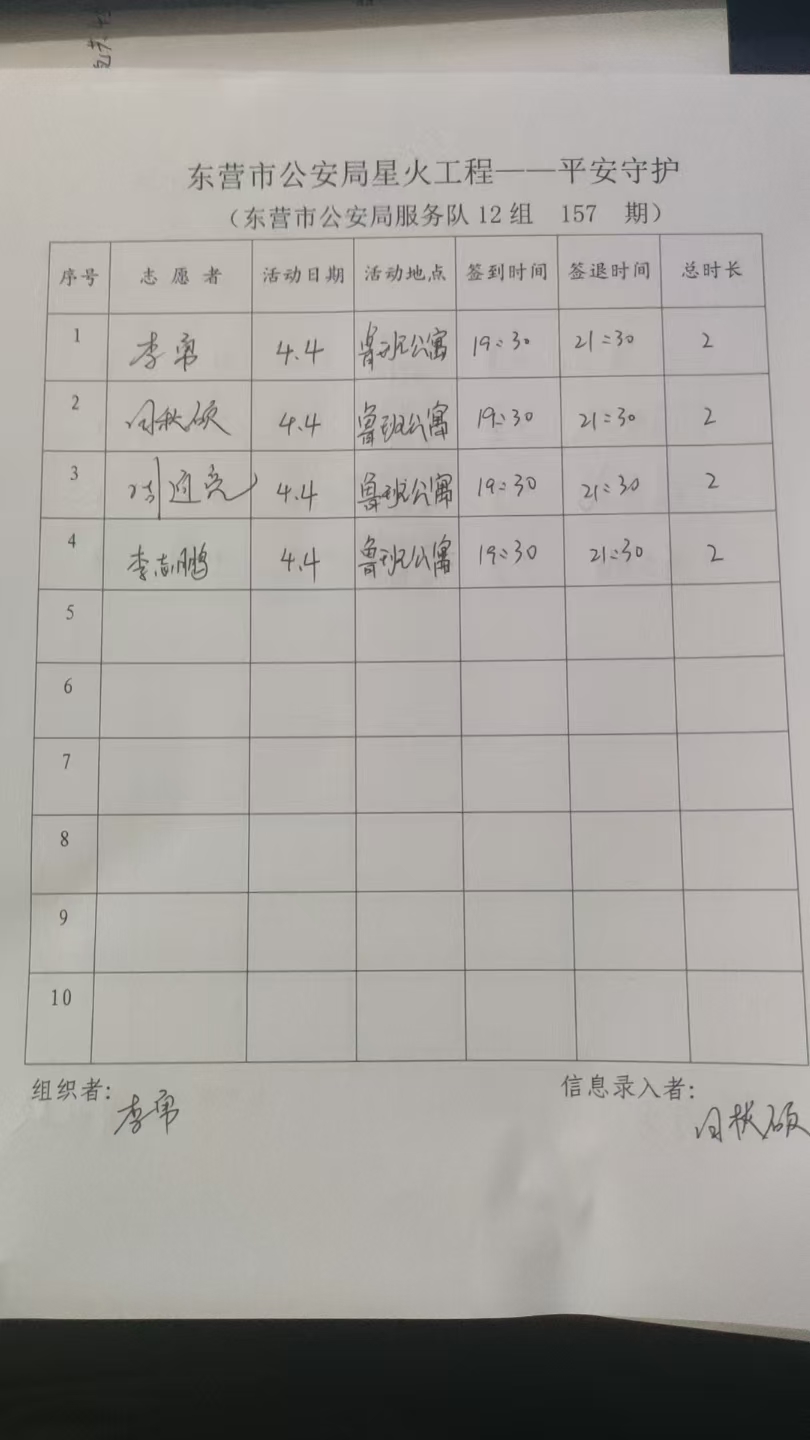 东营市公安局星火工程——平安守护
（东营市公安局服务队12组 157 期）
序号 志愿者 活动日期 活动地点 签到时间 签退时间 总时长
1 李常 4.4 鲁班公寓 19:30 21:30 2
2 闫秋硕 4.4 鲁班公寓 19:30 21:30 2
3 4.4 鲁班公寓 19:30 21:30 2
4 李志鹏 4.4 鲁班公寓 19:30 21:30 2
5
6
7
8
9
10
组织者：李常 信息录入者：闫秋硕